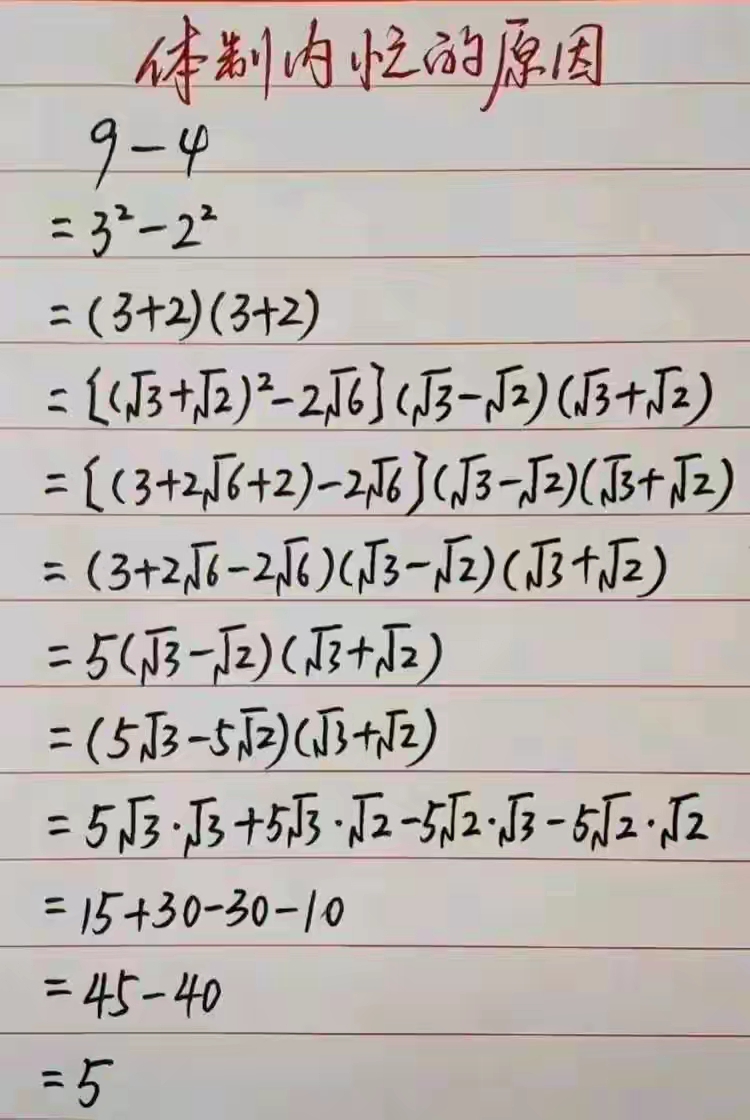 体制内忙的原因
9-4
=3²-2²
=(3+2)(3+2)
=[(√3+√2)²-2√6](√3-√2)(√3+√2)
=[(3+2√6+2)-2√6](√3-√2)(√3+√2)
=(3+2√6-2√6)(√3-√2)(√3+√2)
=5(√3-√2)(√3+√2)
=(5√3-5√2)(√3+√2)
=5√3·√3+5√3·√2-5√2·√3-5√2·√2
=15+30-30-10
=45-40
=5